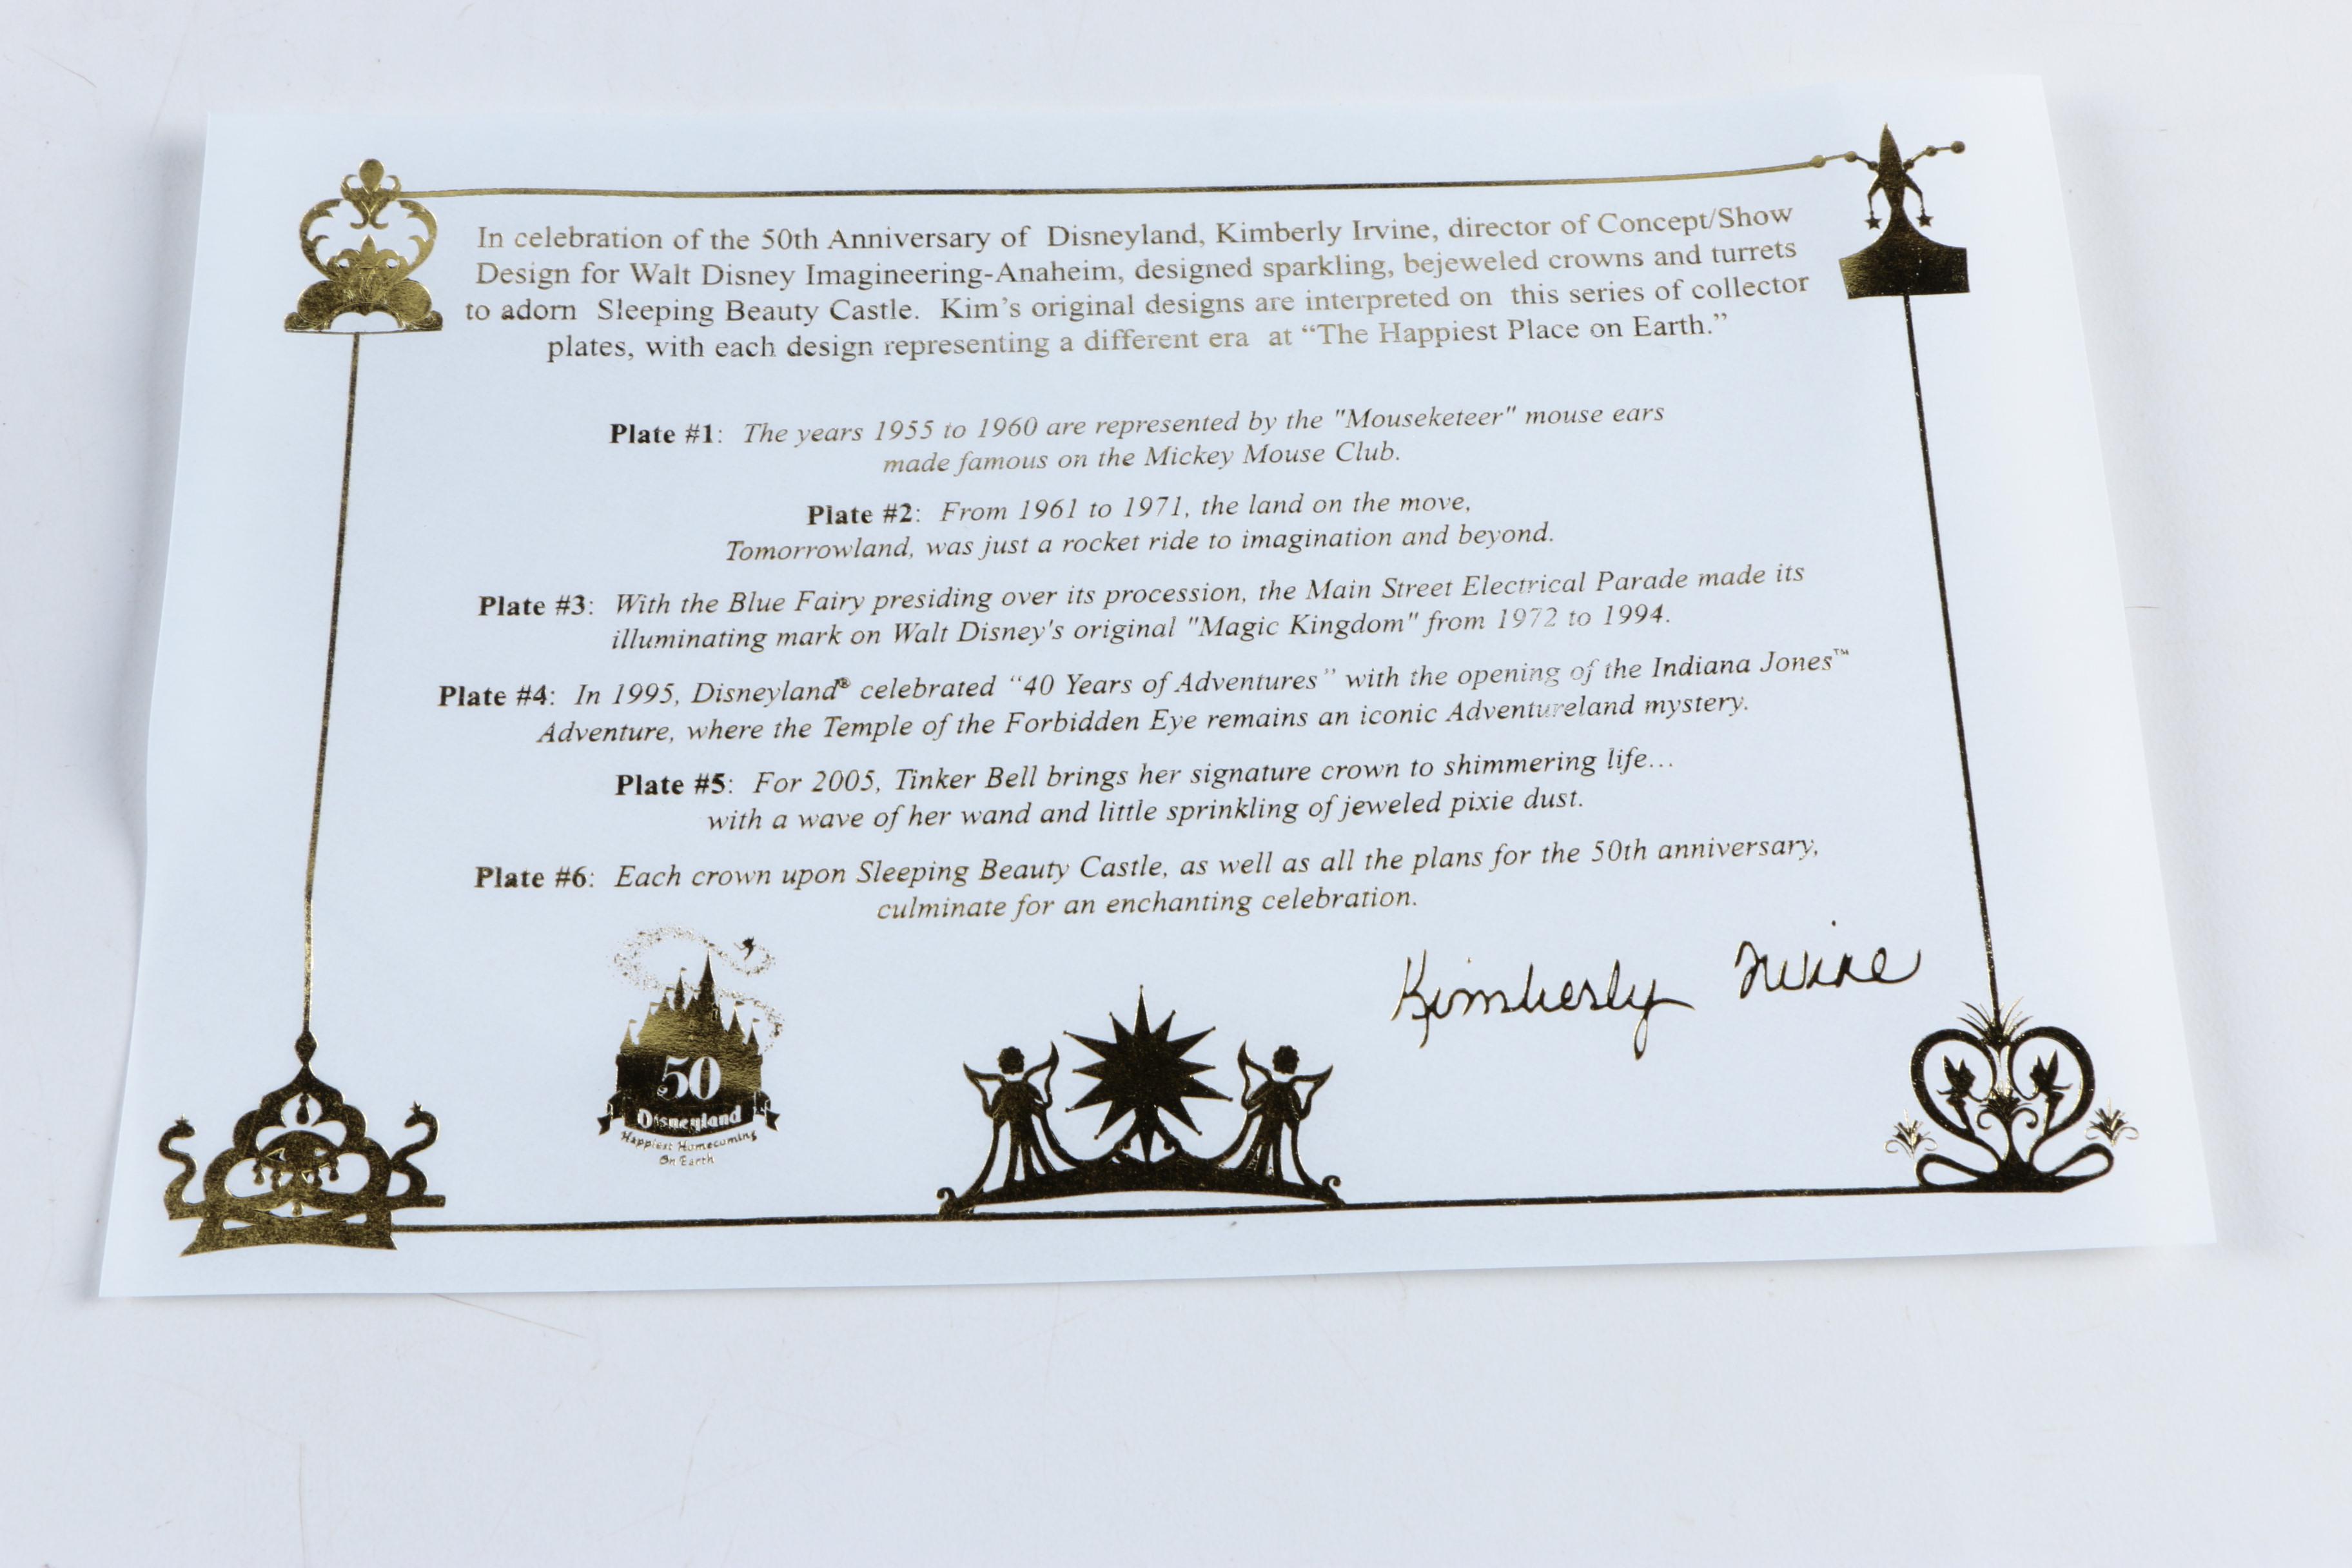 In celebration of the 50th Anniversary of Disneyland, Kimberly Irvine, director of Concept/Show
Design for Walt Disney Imagineering-Anaheim, designed sparkling, bejeweled crowns and turrets
to adorn Sleeping Beauty Castle. Kim's original designs are interpreted on this series of collector
plates, with each design representing a different era at “The Happiest Place on Earth.”
Plate #1: The years 1955 to 1960 are represented by the "Mouseketeer" mouse ears
made famous on the Mickey Mouse Club.
Plate #2: From 1961 to 1971, the land on the move,
Tomorrowland, was just a rocket ride to imagination and beyond.
Plate #3: With the Blue Fairy presiding over its procession, the Main Street Electrical Parade made its
illuminating mark on Walt Disney's original "Magic Kingdom" from 1972 to 1994.
Plate #4: In 1995, Disneyland® celebrated “40 Years of Adventures” with the opening of the Indiana Jones™
Adventure, where the Temple of the Forbidden Eye remains an iconic Adventureland mystery.
Plate #5: For 2005, Tinker Bell brings her signature crown to shimmering life...
with a wave of her wand and little sprinkling of jeweled pixie dust.
Plate #6: Each crown upon Sleeping Beauty Castle, as well as all the plans for the 50th anniversary,
culminate for an enchanting celebration.
Kimberly Irvine
50
Disneyland
Happiest Homecoming
On Earth